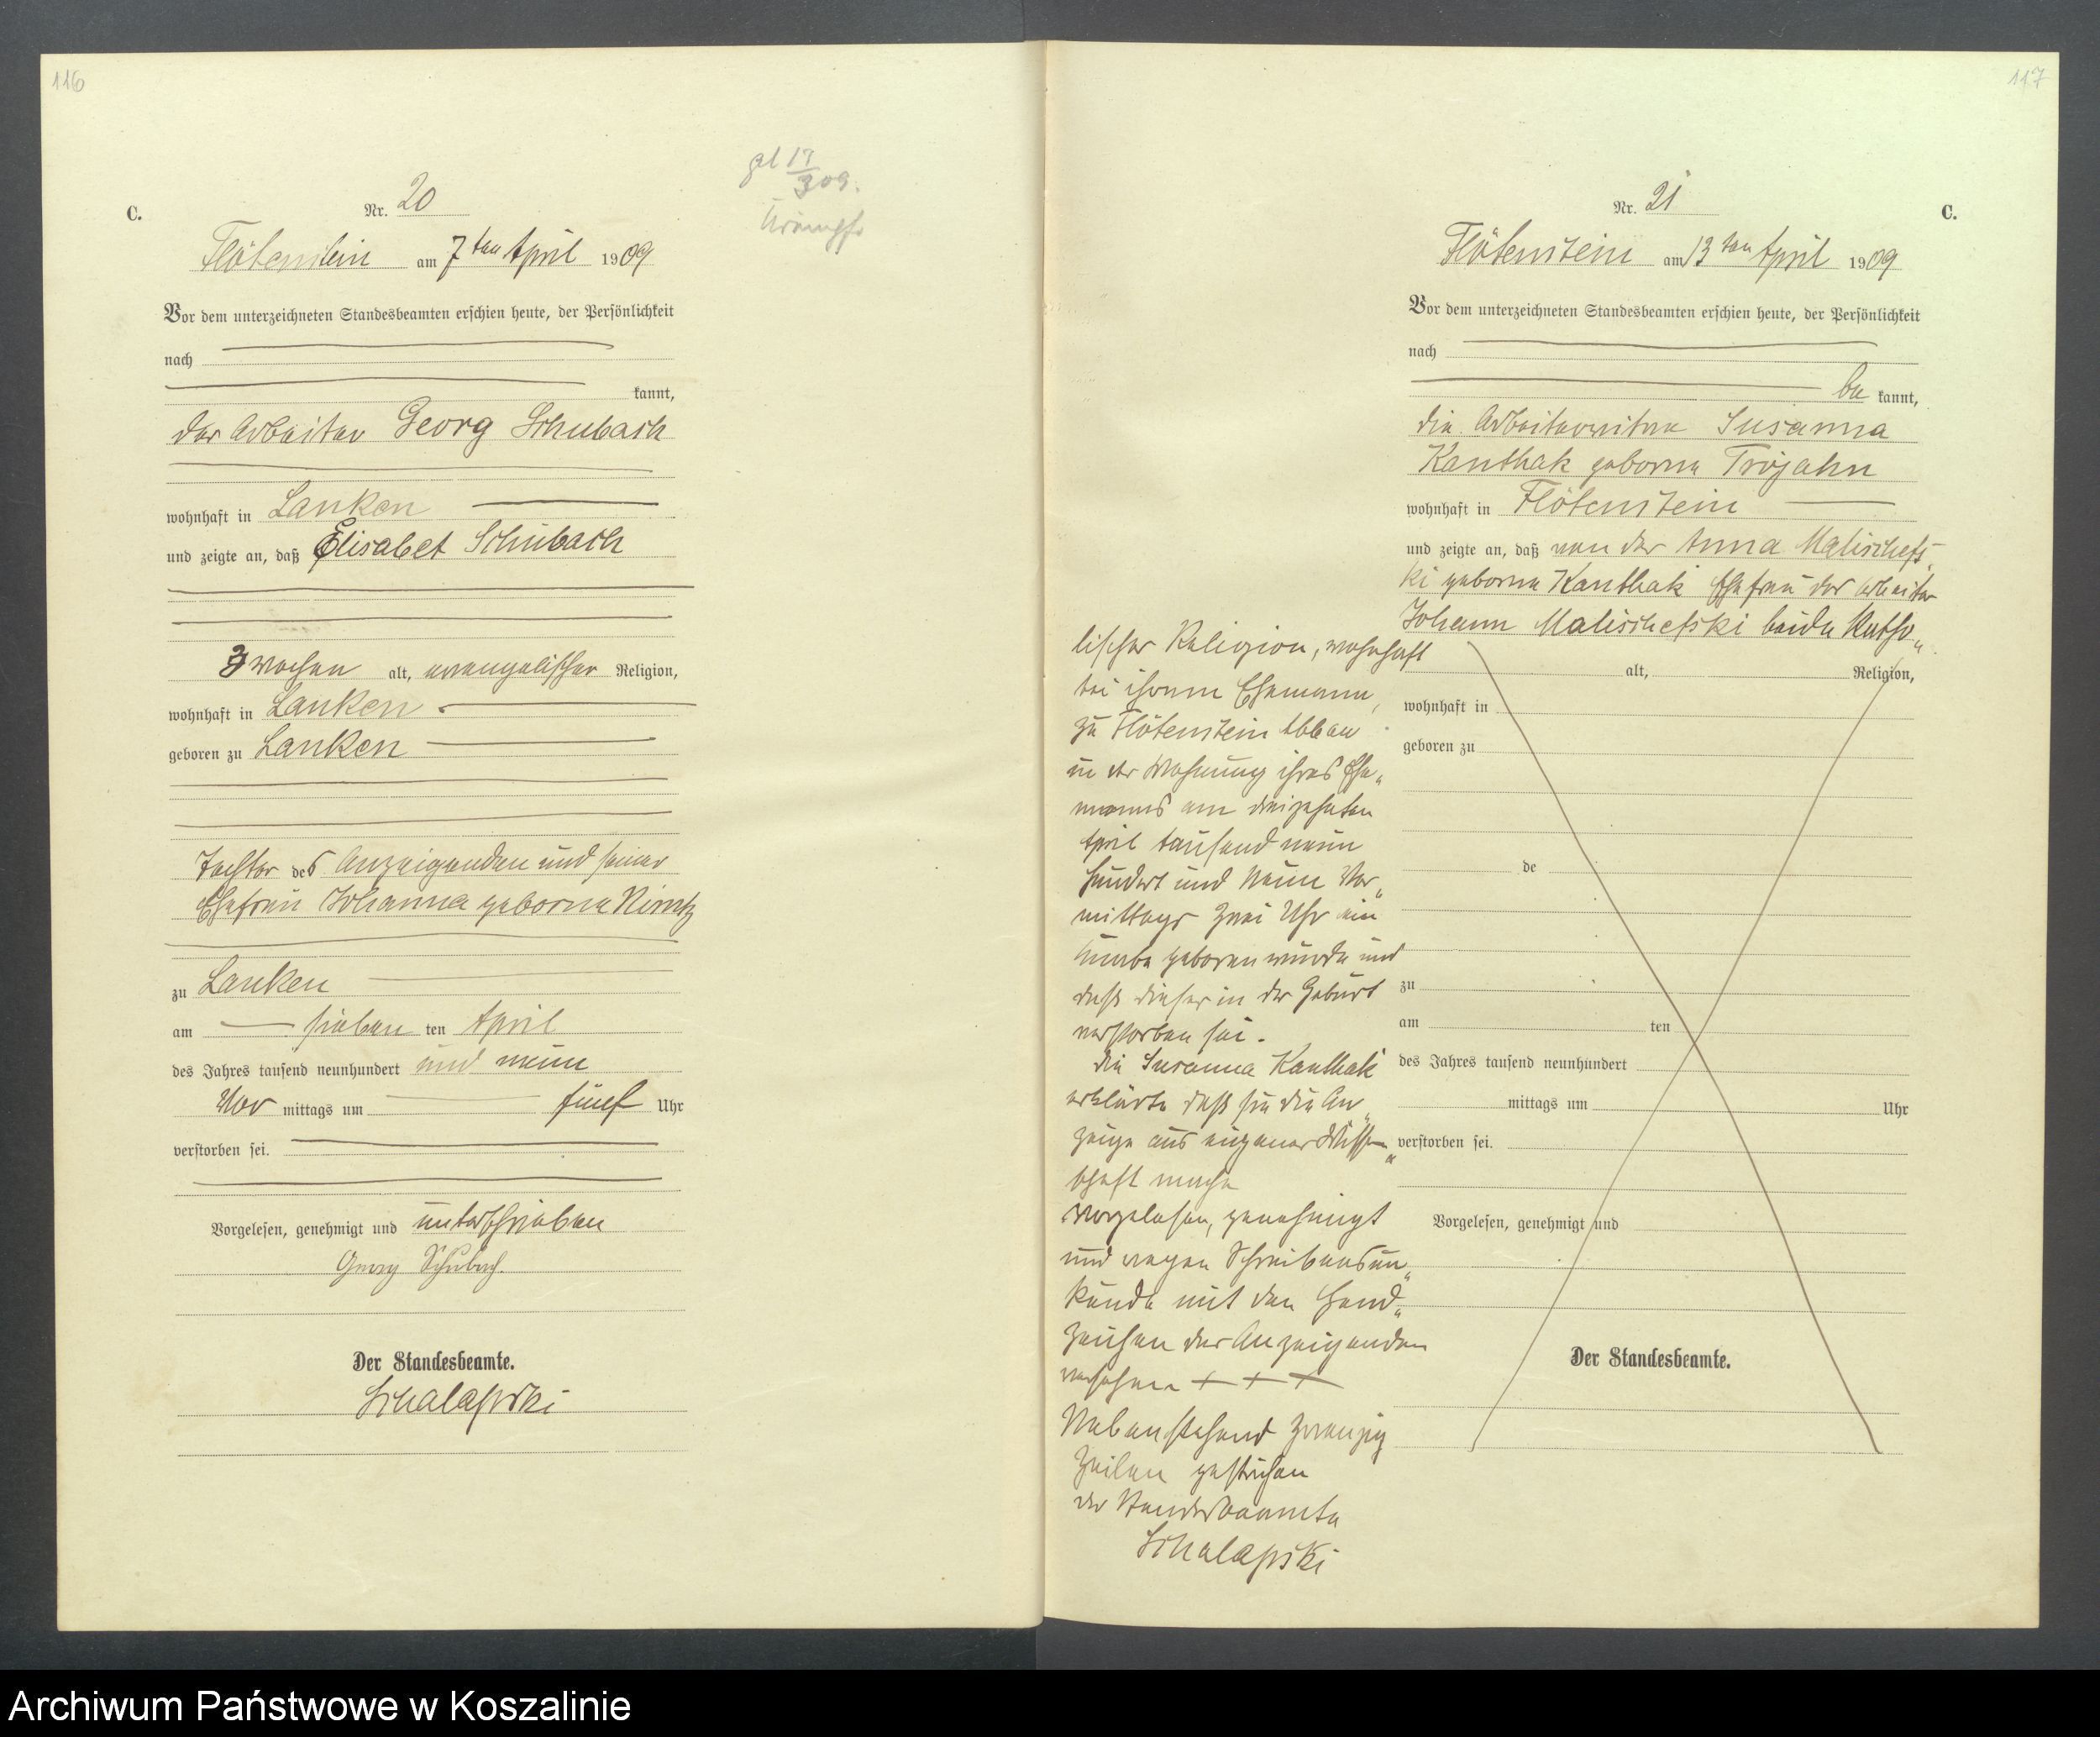 116
gl 17/3 09.
Krämpfe
C.
Nr. 20
Flötenstein am 7ten April 1909
Vor dem unterzeichneten Standesbeamten erschien heute, der Persönlichkeit
nach
kannt,
der Arbeiter Georg Schubach
wohnhaft in Lanken
und zeigte an, daß Elisabet Schubach
3 Wochen alt, evangelischer Religion,
wohnhaft in Lanken
geboren zu Lanken
Tochter des Anzeigenden und seiner
Ehefrau Johanna geborne Nimtz
zu Lanken
am sieben ten April
des Jahres tausend neunhundert und neun
Vor mittags um fünf Uhr
verstorben sei.
Vorgelesen, genehmigt und unterschrieben
Georg Schubach.
Der Standesbeamte.
Schalapski
117
C.
Nr. 21
Flötenstein am 13ten April 1909
Vor dem unterzeichneten Standesbeamten erschien heute, der Persönlichkeit
nach
be kannt,
die Arbeiterwitwe Susanna
Kanthak geborne Trojahn
wohnhaft in Flötenstein
und zeigte an, daß von der Anna Malischefs
ki geborne Kanthak Ehefrau des Arbeiter
Johann Malischefski beide katho„
lischer Religion, wohnhaft
bei ihrem Ehemann,
zu Flötenstein Abbau
in der Wohnung ihres Ehe„
manns am dreizehnten
April tausend neun
hundert und neun Vor„
mittags zwei Uhr ein
Knabe geboren wurde und
daß dieser in der Geburt
verstorben sei.
Die Susanna Kanthak
erklärte daß sie die An„
zeige aus eigener Wissen„
schaft mache
Vorgelesen, genehmigt
und wegen Schreibensun„
kunde mit den Hand„
zeichen der Anzeigenden
versehen + + +
Nebenstehend zwanzig
Zeilen gestrichen
der Standesbeamte
Schalapski
alt, Religion,
wohnhaft in
geboren zu
de
zu
am ten
des Jahres tausend neunhundert
mittags um Uhr
verstorben sei.
Vorgelesen, genehmigt und
Der Standesbeamte.
Archiwum Państwowe w Koszalinie